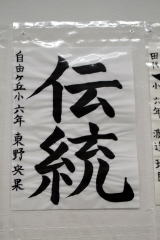 伝統
自由ケ丘小六年 東野央果